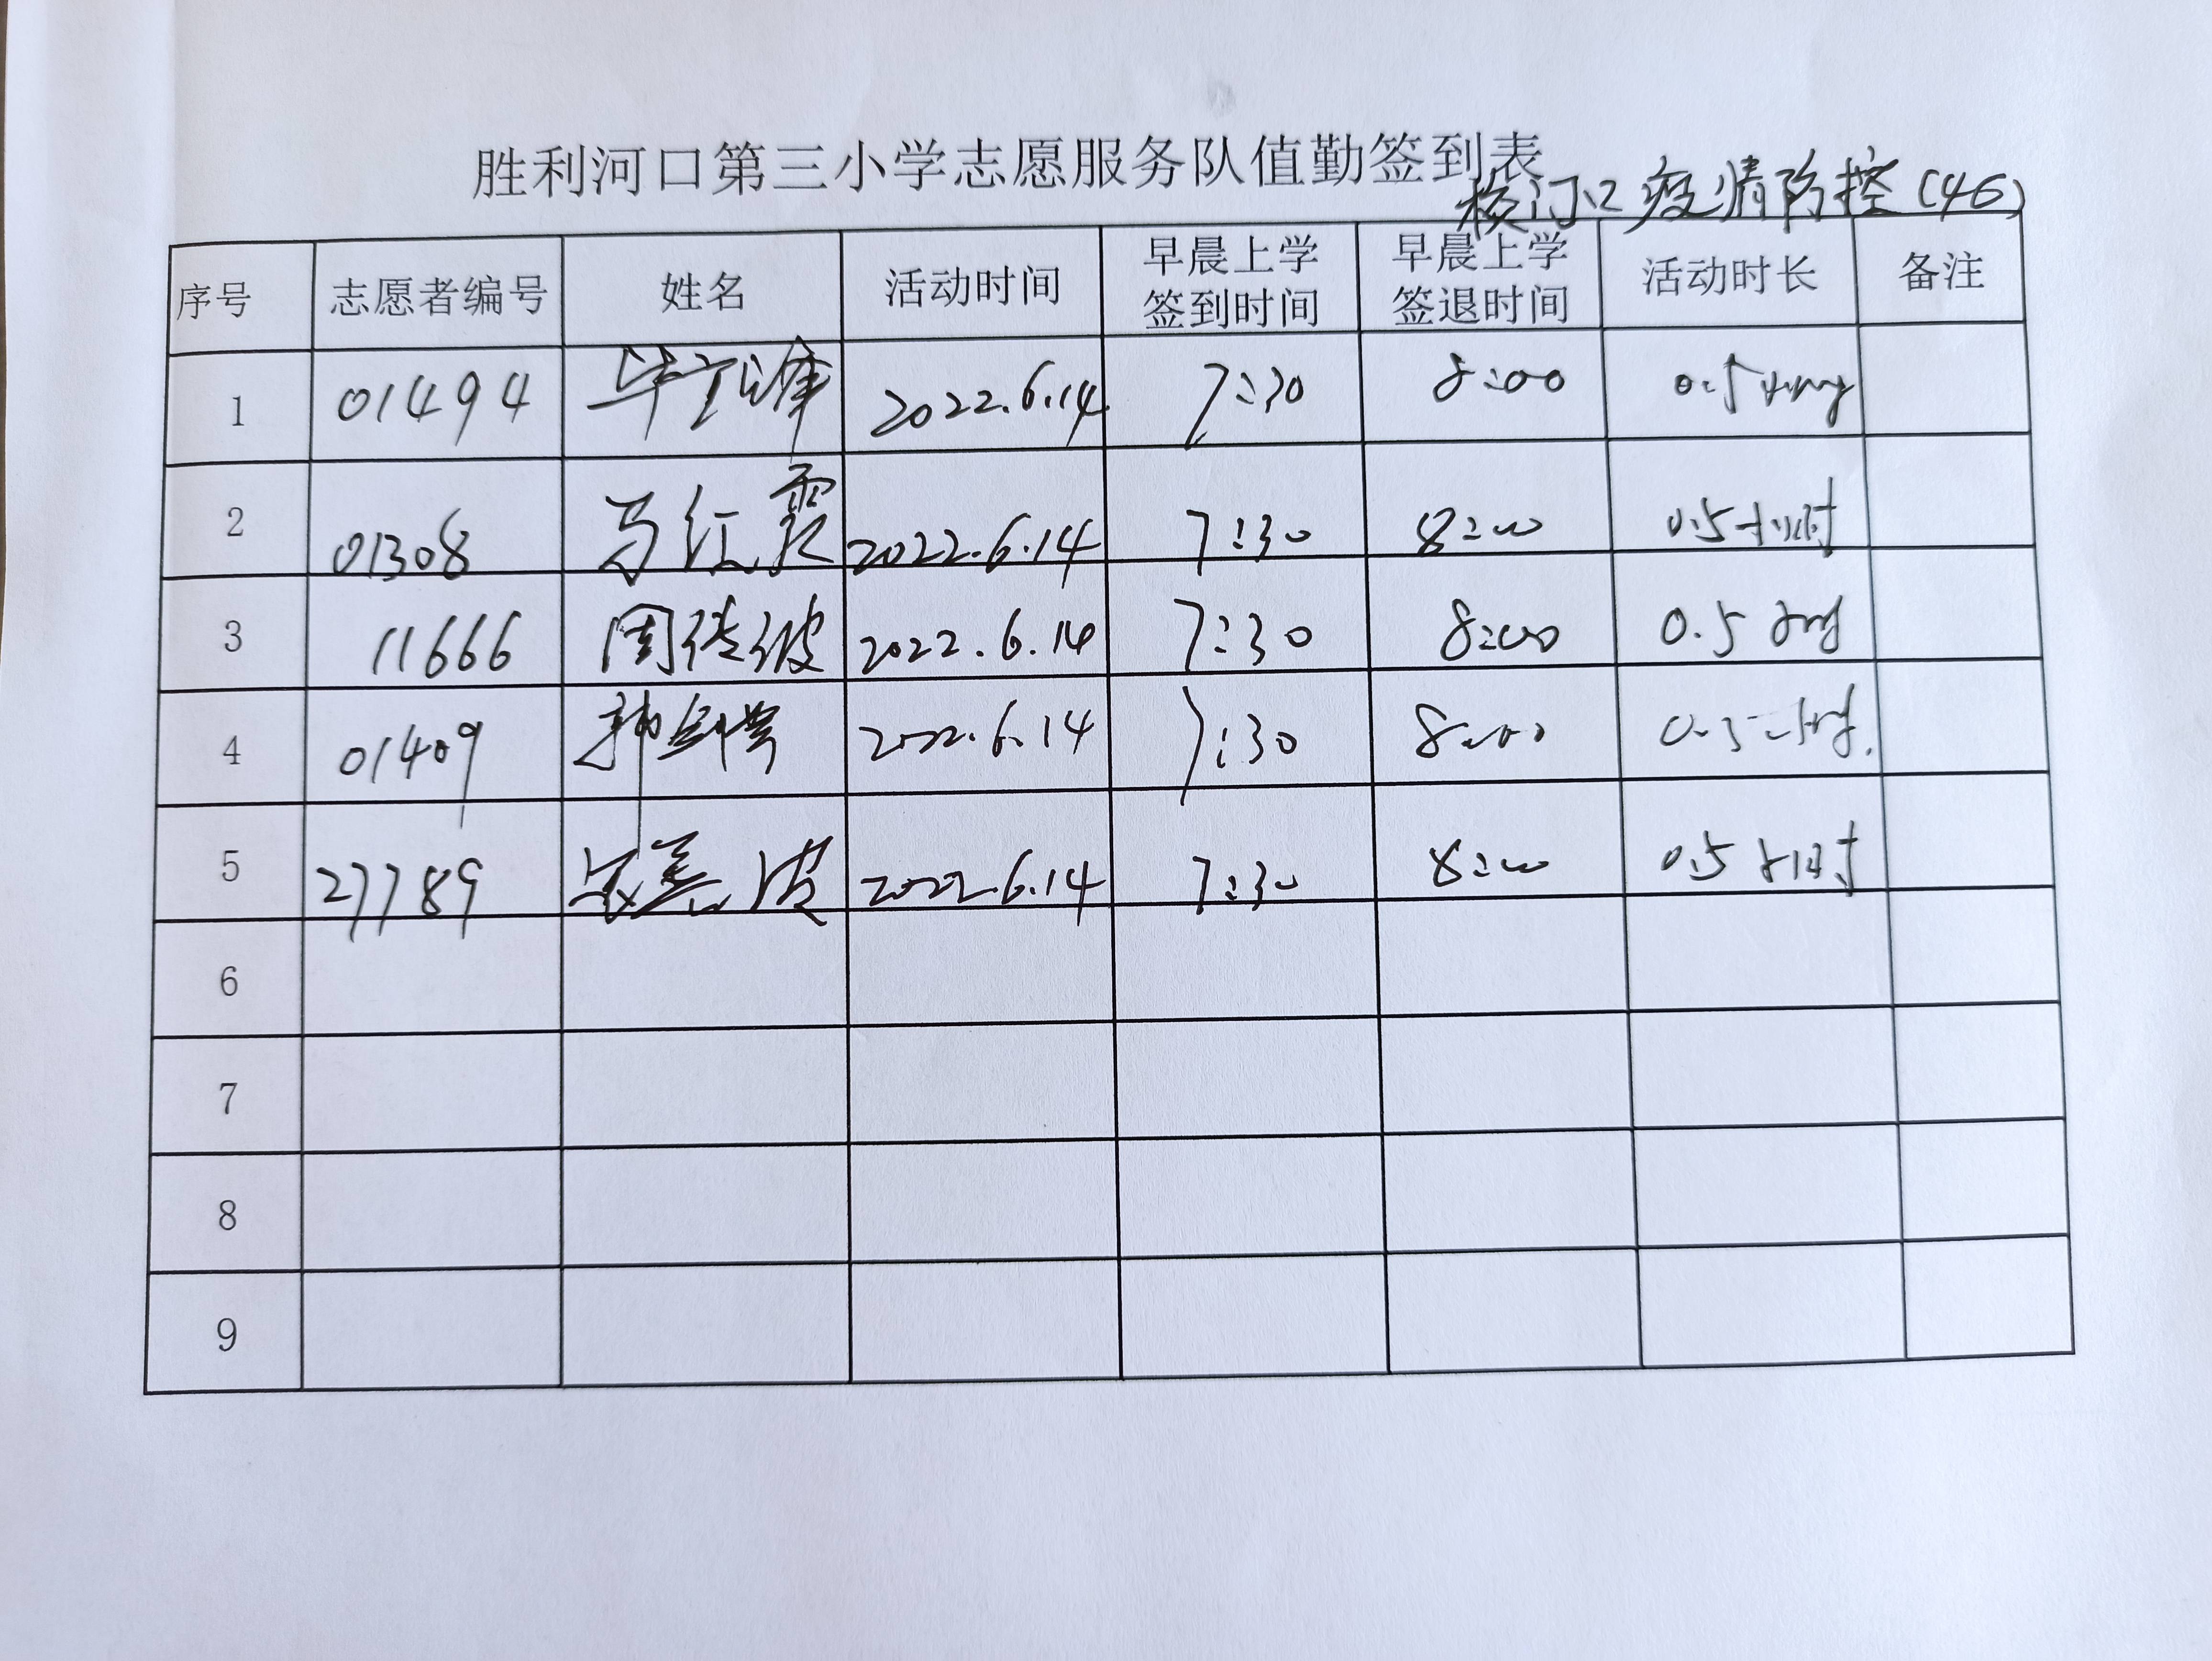 胜利河口第三小学志愿服务队值勤签到表
校门口疫情防控(46)
序号 志愿者编号 姓名 活动时间 早晨上学签到时间 早晨上学签退时间 活动时长 备注
1 01494 2022.6.14 7:30 8:00 0.5小时
2 01308 马红霞 2022.6.14 7:30 8:00 0.5小时
3 11666 2022.6.14 7:30 8:00 0.5小时
4 01409 2022.6.14 7:30 8:00 0.5小时
5 27789 2022.6.14 7:30 8:00 0.5小时
6
7
8
9